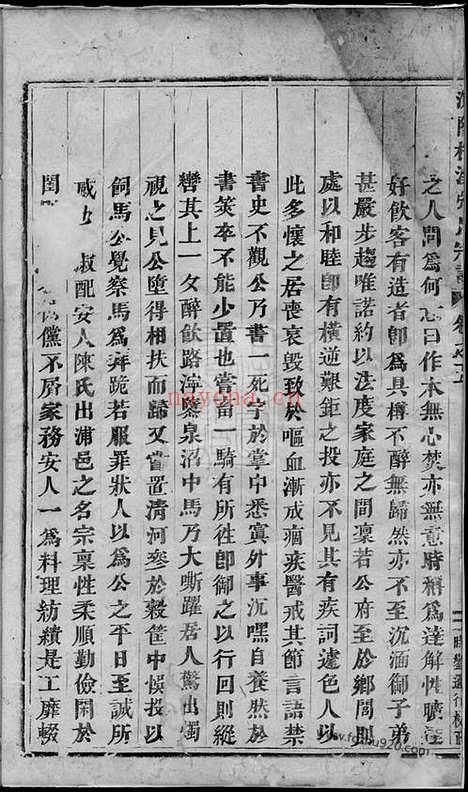 之人問為何忘曰作本無心焚亦無意時稱為達解性曠達
好飲客有造者即為具樽不醉無歸然亦不至沉湎御子弟
甚嚴步趨唯諾約以法度家庭之間凜若公府至於鄉閭則
處以和睦即有橫逆艱鉅之投亦不見其有疾詞遽色人以
此多懷之居喪哀毀致於嘔血漸成痼疾醫戒其節言語禁
書史不觀公乃書一死字於掌中悉寘外事沉嘿自養然於
書筴卒不能少置也嘗畜一騎有所徃即御之以行回則縱
轡其上一夕醉飲路渟 泉沼中馬乃大嘶躍居人驚出燭
視之見公墮得相扶而歸又嘗置清河參於穀筐中悞投以
飼馬公覺察馬為拜跪若服罪狀人以為公之平日至誠所
感 淑配安人陳氏出浦邑之名宗稟性柔順勤儉閑於
閨 倜儻不屑家務安人一為料理紡績是工靡輟
mayona.cn